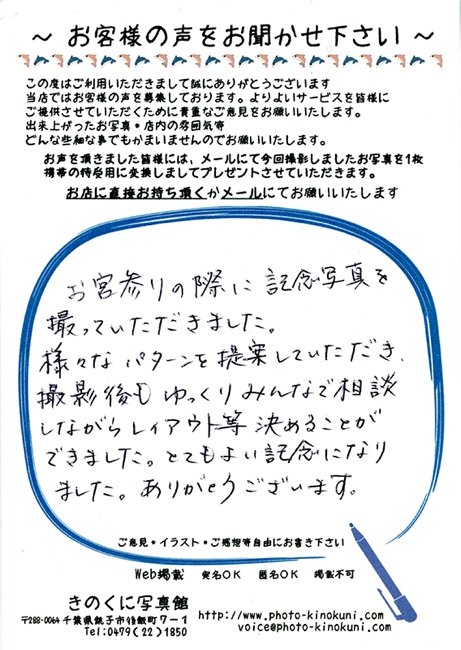 ～ お客様の声をお聞かせ下さい ～
この度はご利用いただきまして誠にありがとうございます
当店ではお客様の声を募集しております。よりよいサービスを皆様に
ご提供させていただくために貴重なご意見をお願いいたします。
出来上がったお写真・店内の雰囲気等
どんな些細な事でもかまいませんのでお願いいたします。
お声を頂きました皆様には、メールにて今回撮影しましたお写真を1枚
携帯の待受用に変換しましてプレゼントさせていただきます。
お店に直接お持ち頂くかメールにてお願いいたします
お宮参りの際に記念写真を
撮っていただきました。
様々なパターンを提案していただき、
撮影後もゆっくりみんなで相談
しながらレイアウト等決めることが
できました。とてもよい記念になり
ました。ありがとうございます。
ご意見・イラスト・ご感想等自由にお書き下さい
Web掲載 実名OK 匿名OK 掲載不可
きのくに写真館
〒288-0064 千葉県銚子市後飯町7-1
Tel:0479(22)1850
http://www.photo-kinokuni.com/
voice@photo-kinokuni.com